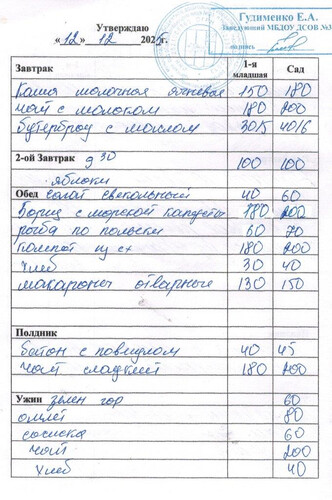 Гудименко Е.А.
Утверждаю Заведующий МБДОУ ДСОВ №3
«12» 12 2025г подпись
Завтрак 1-я младшая Сад
Каша молочная ячневая 150 180
чай с молоком 180 200
бутерброд с маслом 30/5 40/6
2-ой Завтрак 9 30 100 100
яблоки
Обед салат свекольный 40 60
Борщ с морской капусты 180 200
рыба по польски 60 70
Компот из с/х 180 200
хлеб 30 40
макароны отварные 130 150
Полдник
батон с повидлом 40 45
чай сладкий 180 200
Ужин зелен гор 60
омлет 80
сосиска 60
чай 200
хлеб 40